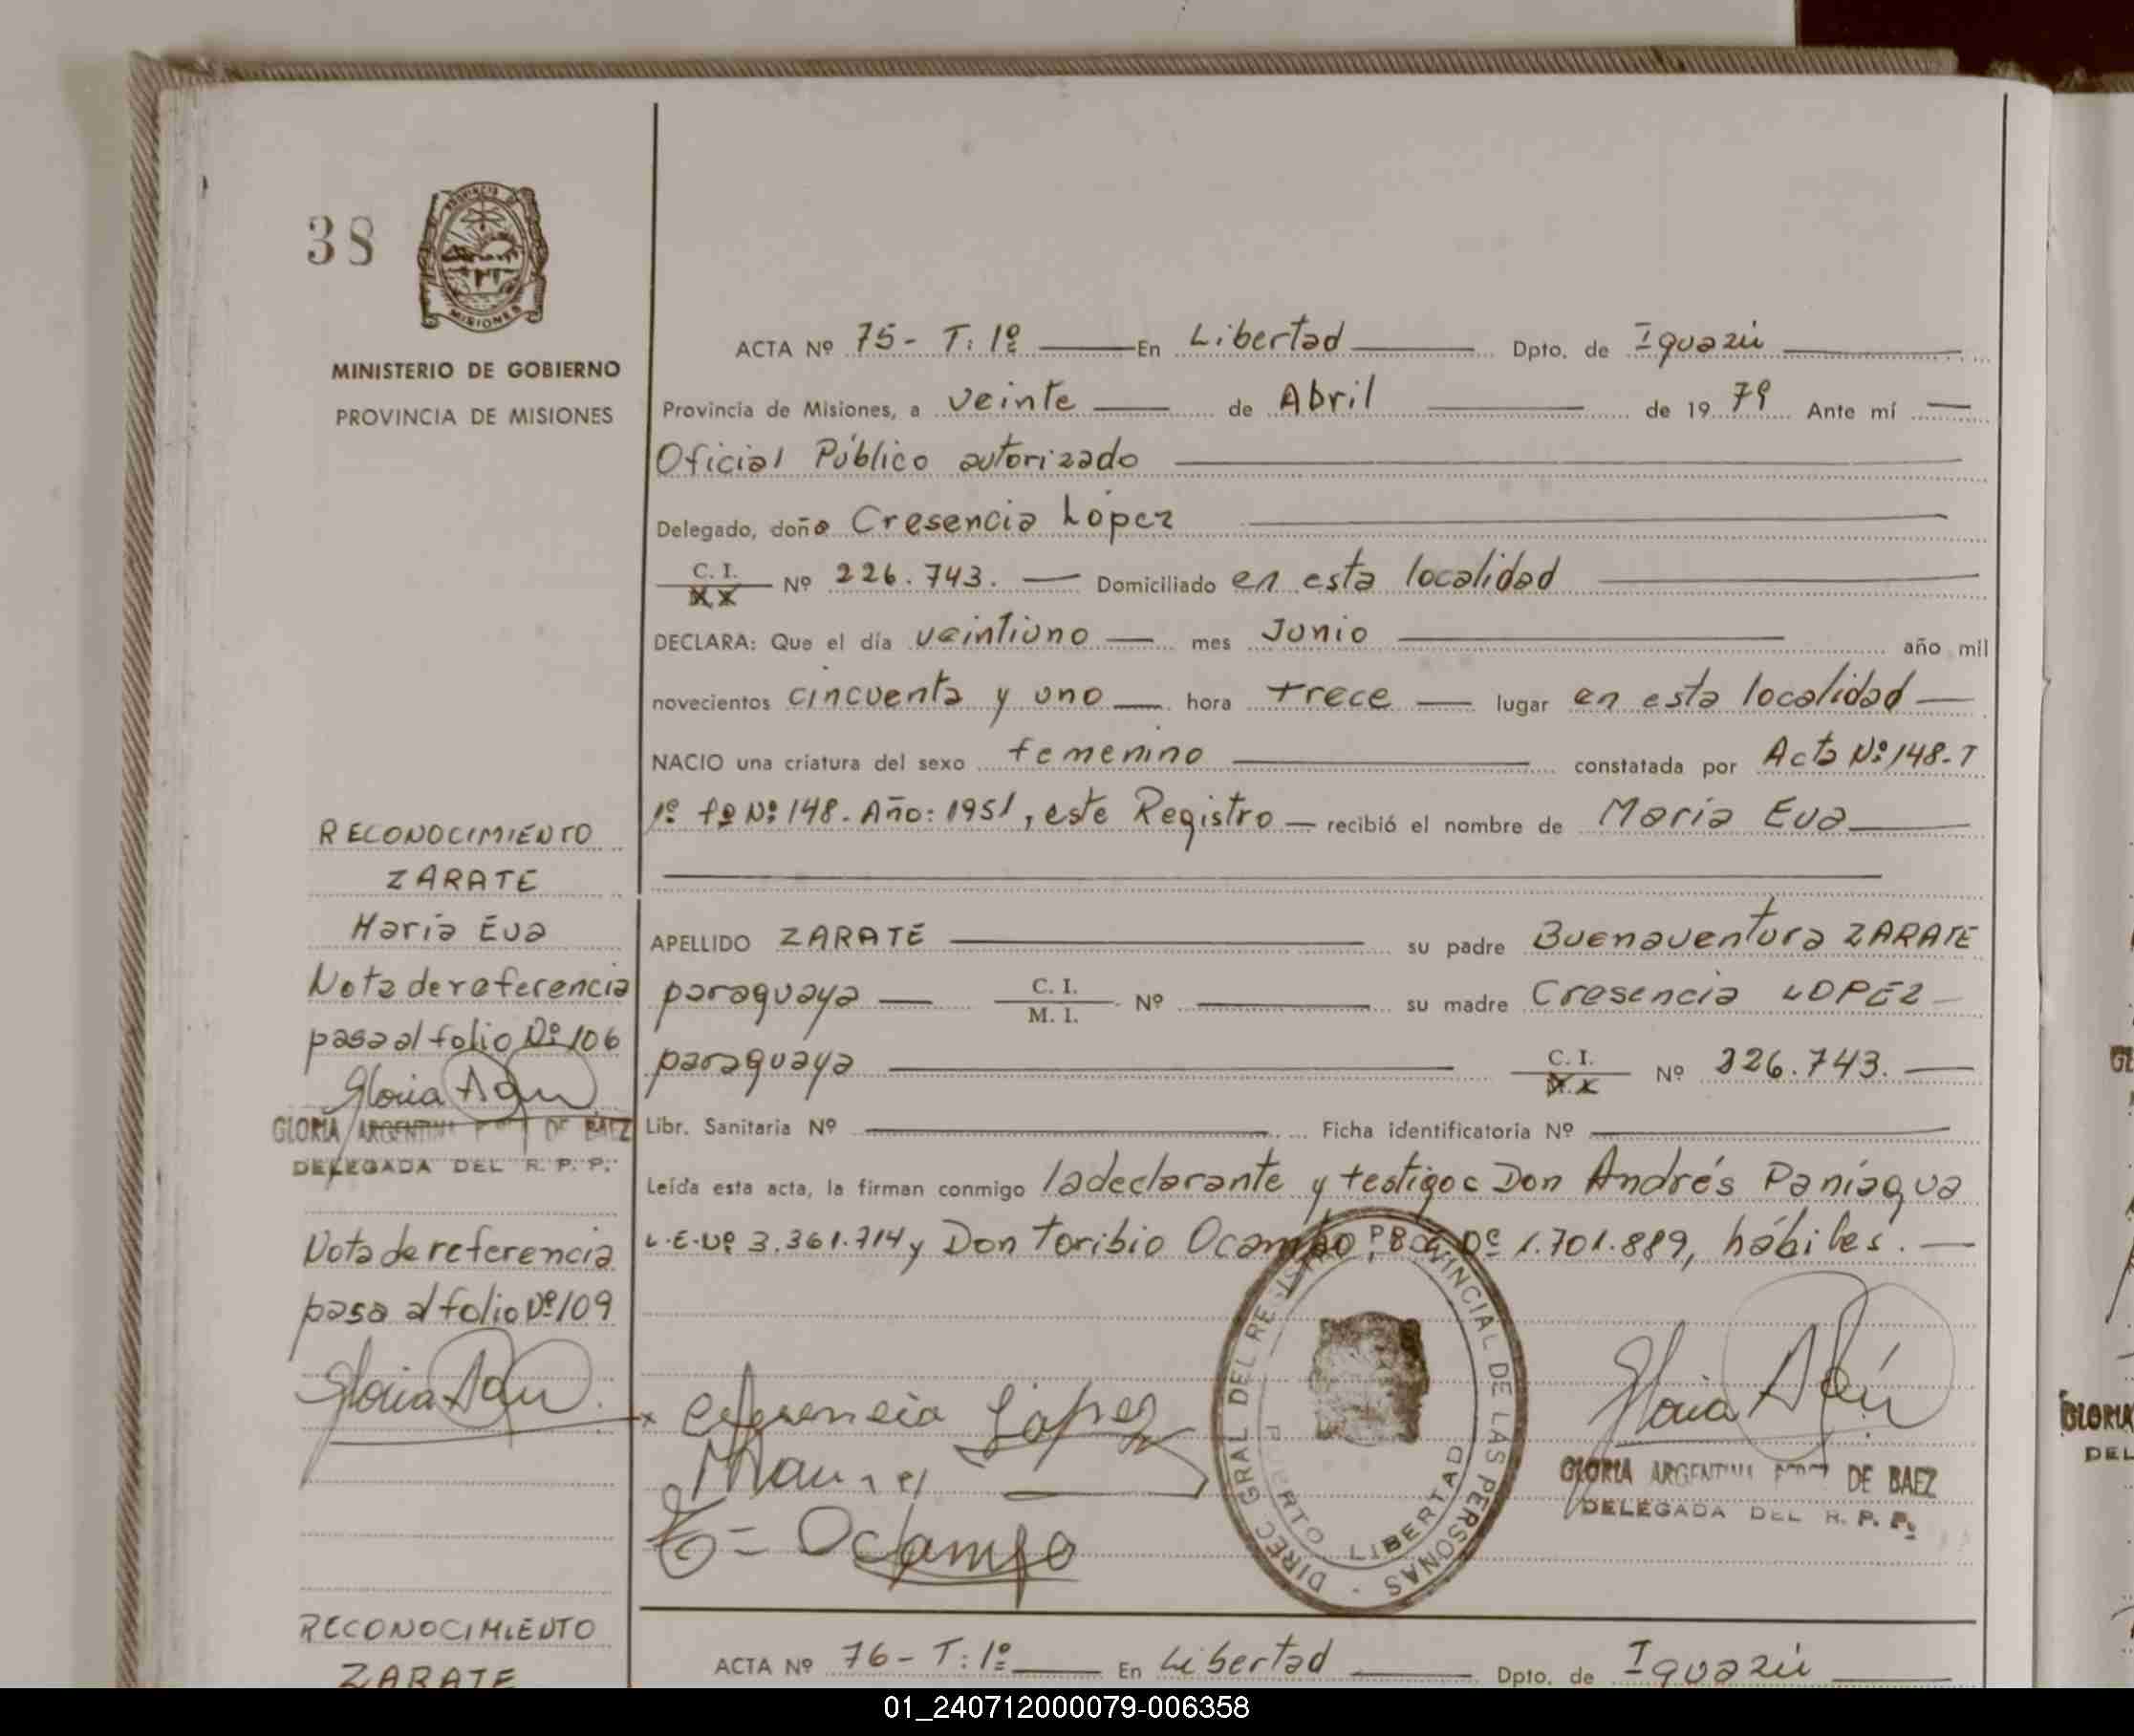 38
PROVINCIA DE
MISIONES
MINISTERIO DE GOBIERNO
PROVINCIA DE MISIONES
ACTA Nº 75- T: 1º En Libertad Dpto. de Iguazú
Provincia de Misiones, a veinte de Abril de 1979 Ante mí
Oficial Público autorizado
Delegado, doña Cresencia López
C. I. Nº 226.743. Domiciliado en esta localidad
DECLARA: Que el día veintiuno mes Junio año mil
novecientos cincuenta y uno hora trece lugar en esta localidad
NACIO una criatura del sexo femenino constatada por Acta Nº 148-T
1º fº Nº 148. Año: 1951, este Registro recibió el nombre de María Eva
RECONOCIMIENTO
ZARATE
María Eva
Nota de referencia
pasa al folio Nº 106
Gloria
GLORIA ARGENTINA DE BAEZ
DELEGADA DEL R. P. P.
Nota de referencia
pasa al folio Nº 109
Gloria
APELLIDO ZARATE su padre Buenaventura ZARATE
paraguaya C. I. M. I. Nº su madre Cresencia LOPEZ
paraguaya C. I. Nº 226.743.
Libr. Sanitaria Nº Ficha identificatoria Nº
Leída esta acta, la firman conmigo la declarante y testigos Don Andrés Paniagua
L.E.Nº 3.361.714 y Don Toribio Ocampo, Nº 1.701.889, hábiles.
DIREC GRAL DEL REGISTRO PROVINCIAL DE LAS PERSONAS
PUERTO LIBERTAD
López
Ocampo
Gloria
GLORIA ARGENTINA DE BAEZ
DELEGADA DEL R. P. P.
RECONOCIMIENTO
ZARATE
ACTA Nº 76- T: 1º En Libertad Dpto. de Iguazú
GLORIA
DEL
01_240712000079-006358